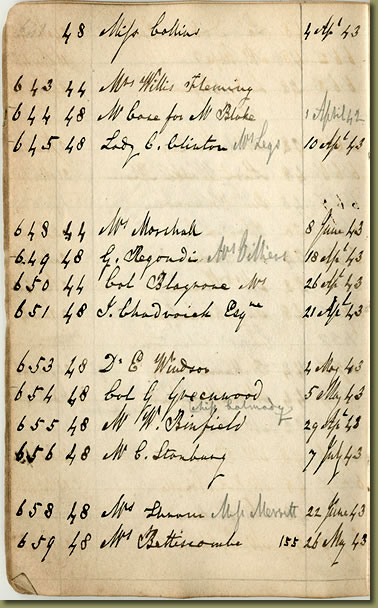 48 Miss Collins 4 Apl 43
643 44 Mrs Willis Fleming
644 48 Mr Case for Mr Blake 1 April 42
645 48 Lady C. Clinton Mrs Legs 10 Apl 43
648 44 Mrs Marshall 8 June 43
649 48 G. Regondi Mrs Villiers 18 Apl 43
650 44 Col Blagrave Mrs 26 Apl 43
651 48 J. Chadwick Esqre 21 Apl 43
653 48 Dr E Windsor 4 May 43
654 48 Col G Greenwood 5 May 43
Miss
655 48 Mr W. Binfield 29 Apl 43
656 48 Mr C. Stanbury 7 July 43
658 48 Mrs Miss Merrett 22 June 43
659 48 Mrs Bettiscombe 155 26 May 43